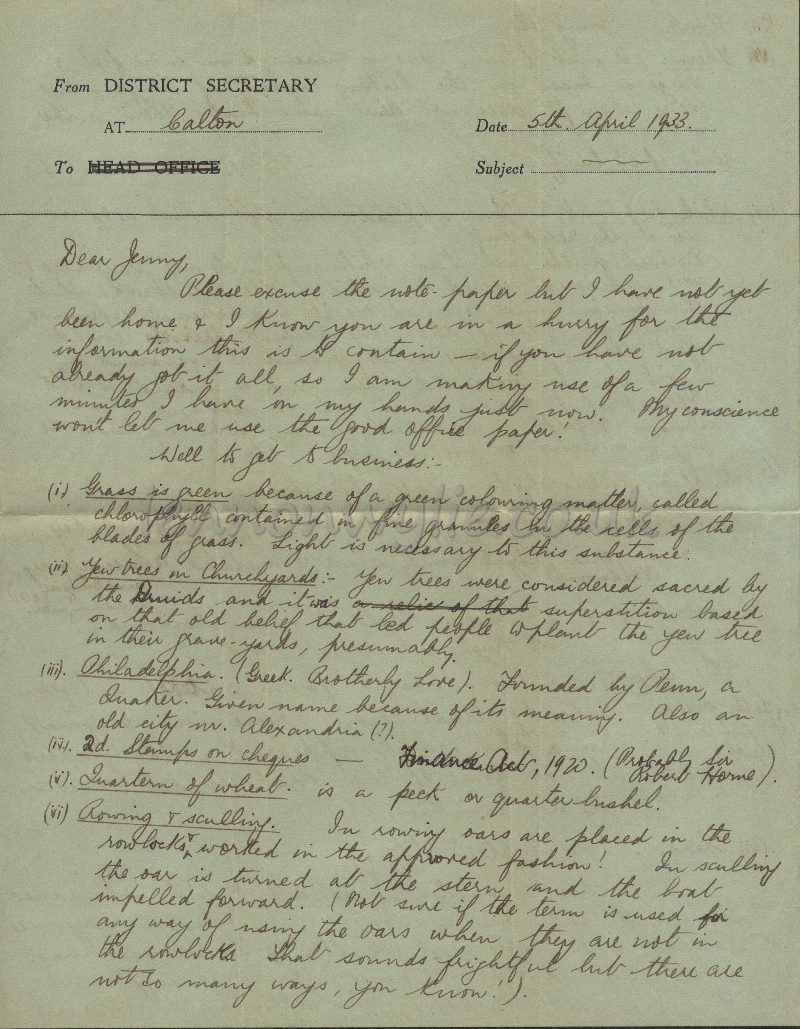 From DISTRICT SECRETARY
AT Calton
Date 5th. April 1933.
To HEAD OFFICE
Subject
Dear Jenny,
Please excuse the note-paper but I have not yet
been home & I know you are in a hurry for the
information this is to contain — if you have not
already got it all, so I am making use of a few
minutes I have on my hands just now. My conscience
won't let me use the good office paper!
Well to get to business:-
(i) Grass is green because of a green colouring matter, called
chlorophyll contained in fine granules in the cells of the
blades of grass. Light is necessary to this substance.
(ii) Yew trees in Churchyards:- Yew trees were considered sacred by
the Druids and it was a relic of that superstition based
on that old belief that led people to plant the yew tree
in their grave-yards, presumably.
(iii). Philadelphia. (Greek. Brotherly Love). Founded by Penn, a
Quaker. Given name because of its meaning. Also an
old city nr. Alexandria (?).
(iv). 2d. Stamps on cheques — Finance Act, 1920. (Probably Sir
Robert Horne).
(v). Quartern of wheat. is a peck or quarter bushel.
(vi) Rowing & sculling. In rowing oars are placed in the
rowlocks & worked in the approved fashion! In sculling
the oar is turned at the stern and the boat
impelled forward. (Not sure if the term is used for
any way of using the oars when they are not in
the rowlocks That sounds frightful but there are
not so many ways, you know!).